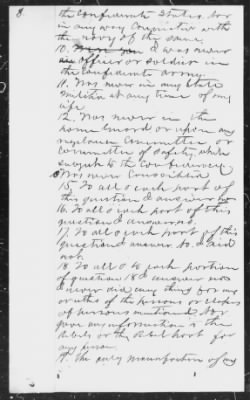 8
the Confederate States nor
in any way Connected with
the navy of the same.
10. I was never
officer or soldier in
the Confederate army.
11. Was never in any State
militia at any time of my
life
12. Was never in the
home Guard or upon any
vigilance Committee or
Committee of Safety, while
subject to the Confederacy
Was never Conscripted
15. To all & each part of
this question I answer no
16. To all & each part of this
question I answer no
17. To all & each part of this
question I answer I did
not.
18. To all & to each portion
of question 18 I answer no
I never did any thing for any
or either of the persons or classes
of persons mentioned. Nor
gave any information to the
Rebels or the Rebel Govt for
any person
19. the only manufacture of any